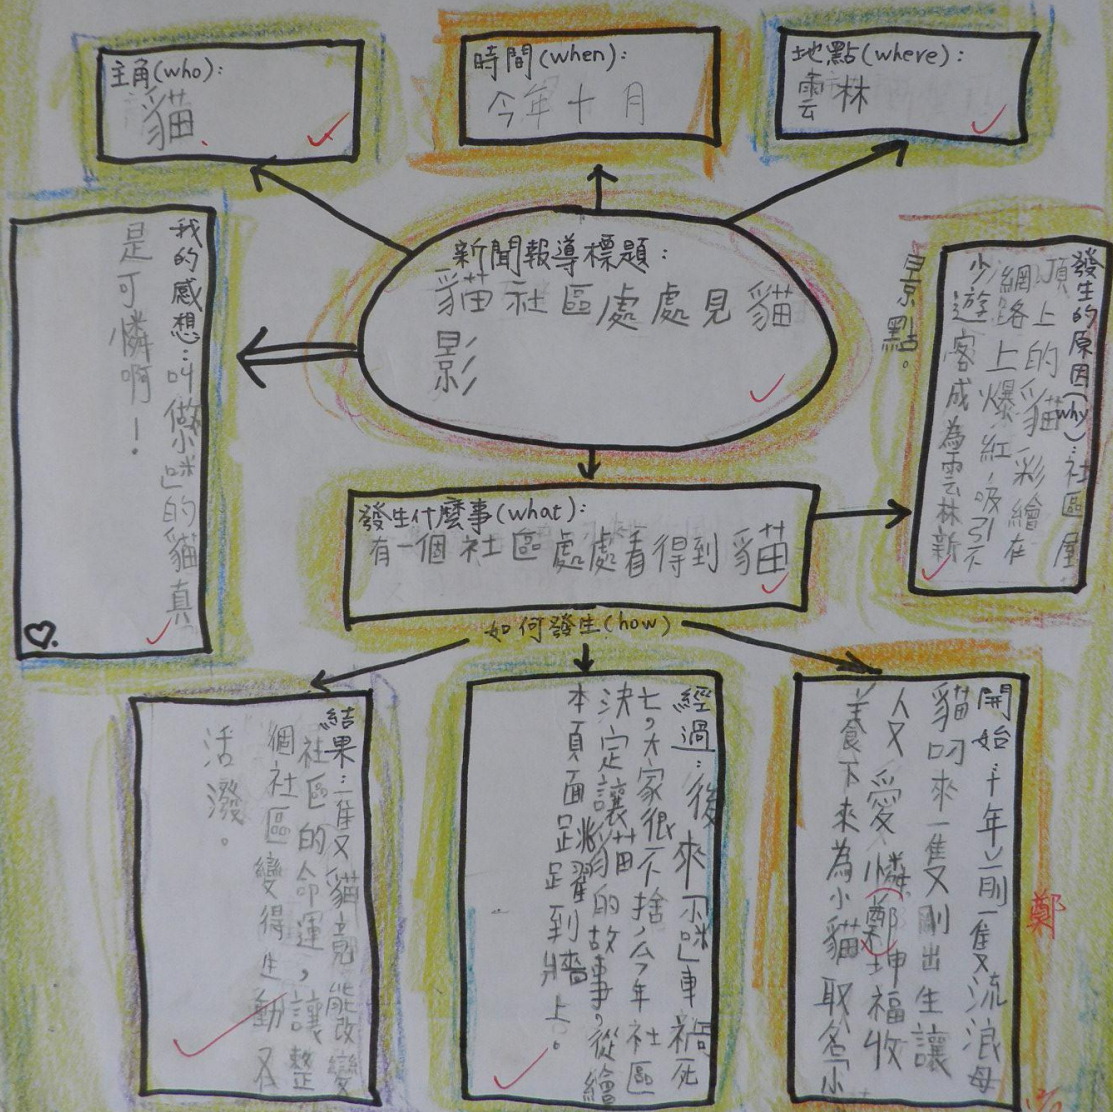 主角(who):
貓
時間(when):
今年十月
地點(where):
雲林
新聞報導標題:
貓社區處處見貓
影
發生什麼事(what):
有一個社區處處看得到貓
發生的原因(why):社區屋
頂上的貓彩繪在
網路上爆紅,吸引不
少遊客成為雲林新
景點。
我的感想:叫做「小咪」的貓真
是可憐啊!
如何發生(how)
開始:十年前一隻流浪母
貓叼來一隻剛出生讓
人又愛憐,鄭坤福收
養下來為小貓取名「小
鄭
經過:後來「小咪」車禍死
亡,大家很不捨,今年社區
決定讓貓的故事。從繪
本頁面跳躍到牆上。
結果:一隻貓竟能改變
社區的命運,讓整
個社區變得生動又
活潑。